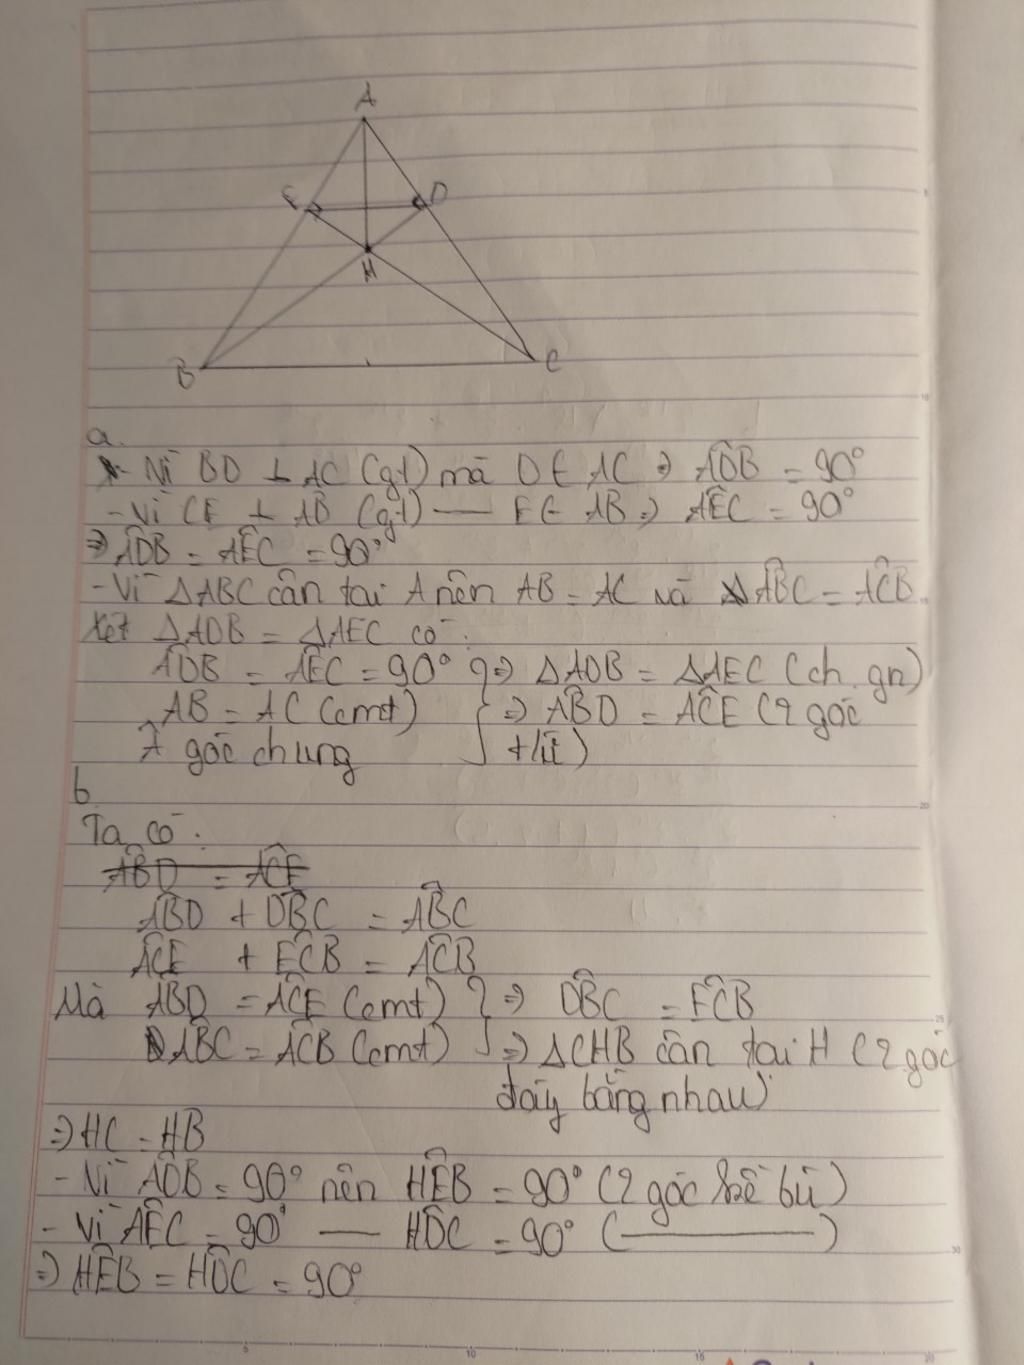 A
E
D
H
B
C
a.
- Vì BD ⊥ AC (gt) mà D ∈ AC ⇒ ADB̂ = 90°
- Vì CE ⊥ AB (gt) — E ∈ AB ⇒ AÊC = 90°
⇒ AD̂B = AÊC = 90°
- Vì △ABC cân tại A nên AB = AC và AB̂C = AĈB
Xét △ADB = △AEC có:
AD̂B = AÊC = 90° } ⇒ △ADB = △AEC (ch.gn)
AB = AC (cmt) ⇒ AB̂D = AĈE (2 góc
Â góc chung t/ứ)
b
Ta có:
AB̂D = AĈE
AB̂D + DB̂C = AB̂C
AĈE + EĈB = AĈB
Mà AB̂D = AĈE (cmt) } ⇒ DB̂C = EĈB
AB̂C = AĈB (cmt) ⇒ △CHB cân tại H (2 góc
đáy bằng nhau)
⇒ HC = HB
- Vì AD̂B = 90° nên HÊB = 90° (2 góc kề bù)
- Vì AÊC = 90° — HD̂C = 90° (—)
⇒ HÊB = HD̂C = 90°